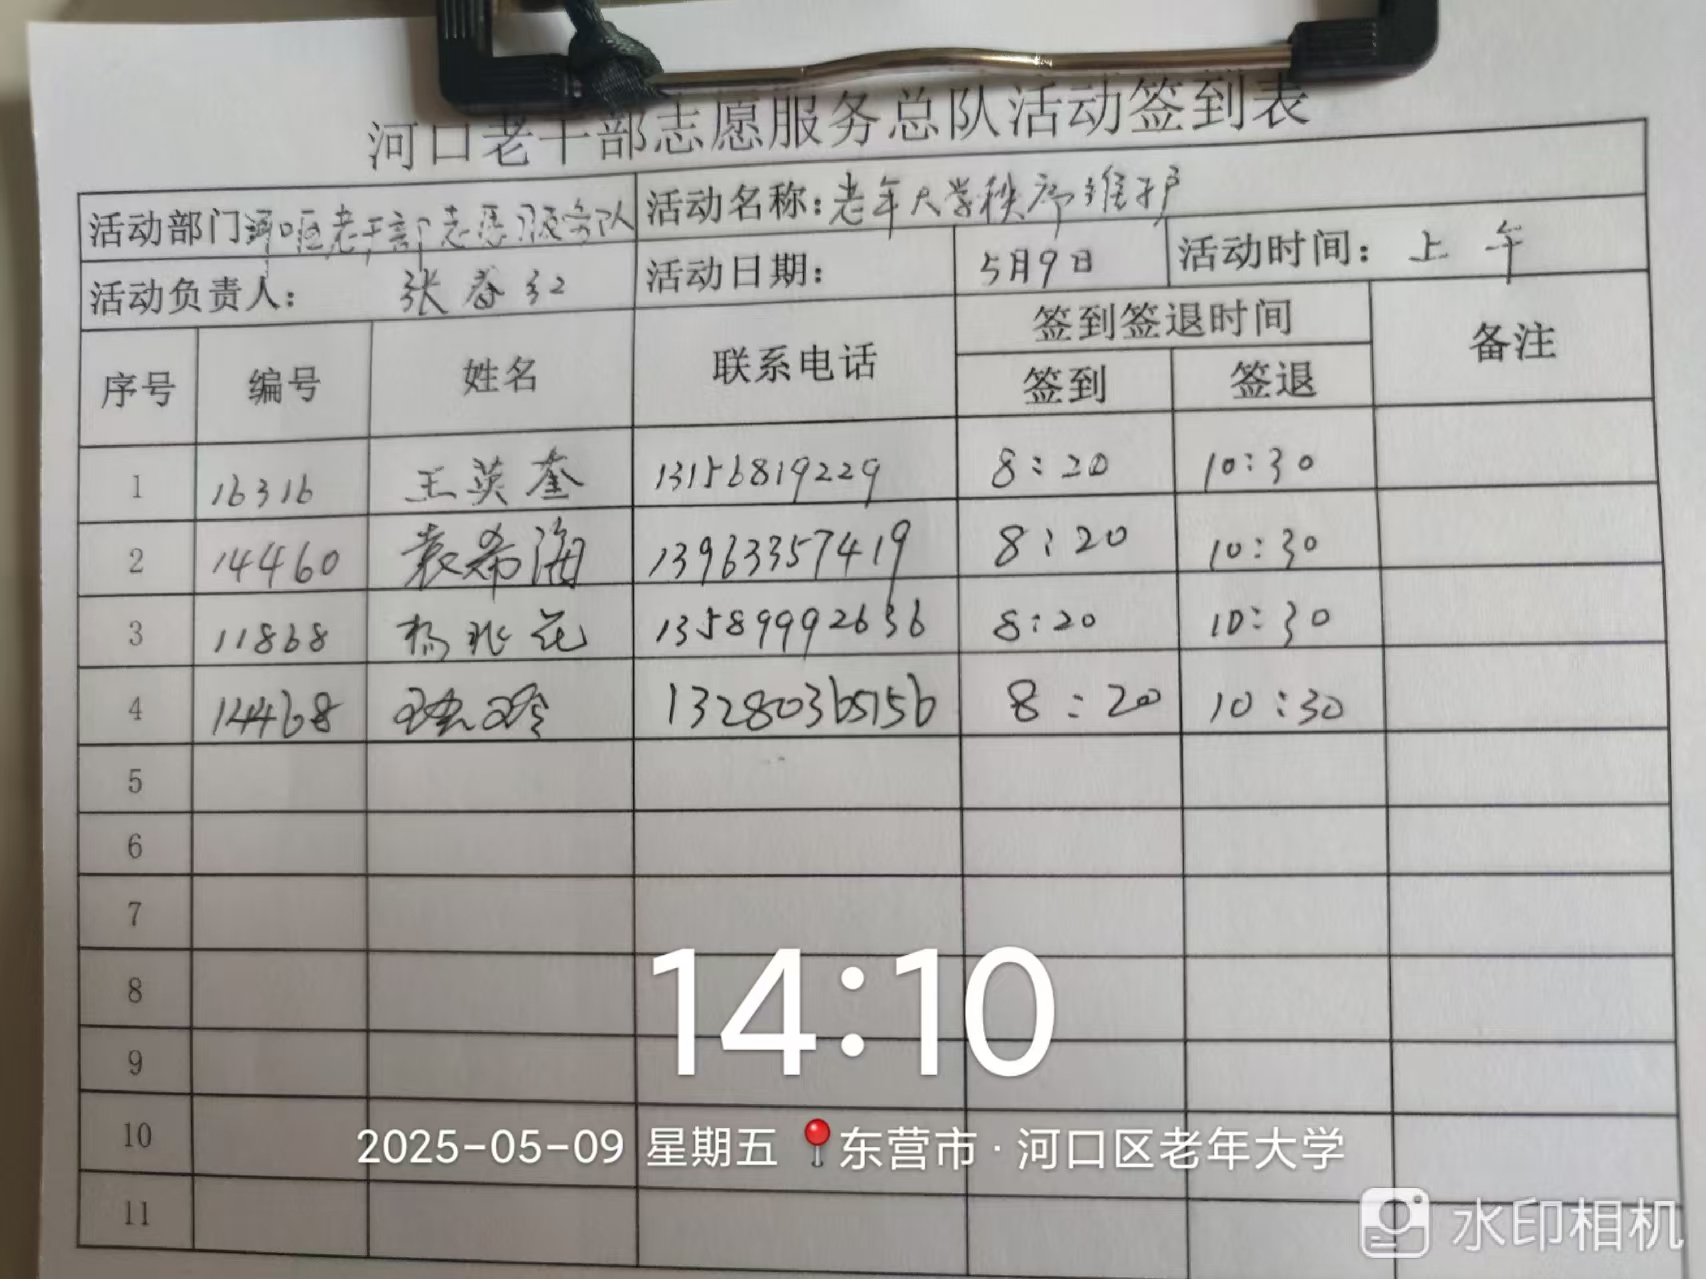 河口老干部志愿服务总队活动签到表
活动部门 河口区老干部志愿服务队 活动名称：老年大学秩序维护
活动负责人： 张春红 活动日期： 5月9日 活动时间： 上午
序号 编号 姓名 联系电话 签到签退时间 备注
签到 签退
1 16316 王英奎 13156819229 8:20 10:30
2 14460 袁希海 13963357419 8:20 10:30
3 11868 杨兆花 13589992636 8:20 10:30
4 14468 13280365156 8:20 10:30
5
6
7
8
9
10
11
14:10
2025-05-09 星期五 东营市·河口区老年大学
水印相机